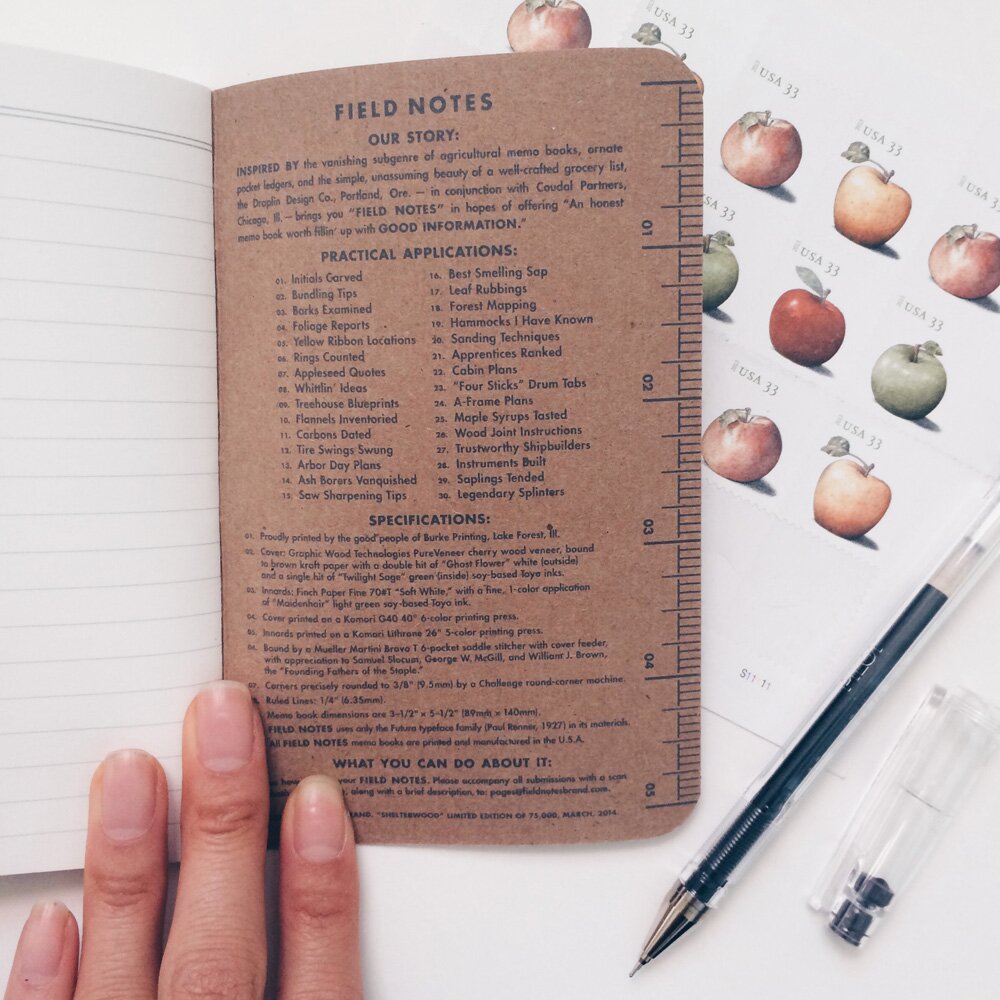 FIELD NOTES
OUR STORY:
INSPIRED BY the vanishing subgenre of agricultural memo books, ornate
pocket ledgers, and the simple, unassuming beauty of a well-crafted grocery list,
the Draplin Design Co., Portland, Ore. — in conjunction with Coudal Partners,
Chicago, Ill. — brings you "FIELD NOTES" in hopes of offering "An honest
memo book worth fillin' up with GOOD INFORMATION."
PRACTICAL APPLICATIONS:
01. Initials Carved
02. Bundling Tips
03. Barks Examined
04. Foliage Reports
05. Yellow Ribbon Locations
06. Rings Counted
07. Appleseed Quotes
08. Whittlin' Ideas
09. Treehouse Blueprints
10. Flannels Inventoried
11. Carbons Dated
12. Tire Swings Swung
13. Arbor Day Plans
14. Ash Borers Vanquished
15. Saw Sharpening Tips
16. Best Smelling Sap
17. Leaf Rubbings
18. Forest Mapping
19. Hammocks I Have Known
20. Sanding Techniques
21. Apprentices Ranked
22. Cabin Plans
23. "Four Sticks" Drum Tabs
24. A-Frame Plans
25. Maple Syrups Tasted
26. Wood Joint Instructions
27. Trustworthy Shipbuilders
28. Instruments Built
29. Saplings Tended
30. Legendary Splinters
SPECIFICATIONS:
01. Proudly printed by the good people of Burke Printing, Lake Forest, Ill.
02. Cover: Graphic Wood Technologies PureVeneer cherry wood veneer, bound
to brown kraft paper with a double hit of "Ghost Flower" white (outside)
and a single hit of "Twilight Sage" green (inside) soy-based Toyo inks.
03. Innards: Finch Paper Fine 70#T "Soft White," with a fine, 1-color application
of "Maidenhair" light green soy-based Toyo ink.
04. Cover printed on a Komori G40 40" 6-color printing press.
05. Innards printed on a Komori Lithrone 26" 5-color printing press.
06. Bound by a Mueller Martini Bravo T 6-pocket saddle stitcher with cover feeder,
with appreciation to Samuel Slocum, George W. McGill, and William J. Brown,
the "Founding Fathers of the Staple."
07. Corners precisely rounded to 3/8" (9.5mm) by a Challenge round-corner machine.
Ruled Lines: 1/4" (6.35mm).
Memo book dimensions are 3-1/2" × 5-1/2" (89mm × 140mm).
FIELD NOTES uses only the Futura typeface family (Paul Renner, 1927) in its materials.
All FIELD NOTES memo books are printed and manufactured in the U.S.A.
WHAT YOU CAN DO ABOUT IT:
how your FIELD NOTES. Please accompany all submissions with a scan
along with a brief description, to: pages@fieldnotesbrand.com.
"SHELTERWOOD" LIMITED EDITION OF 75,000, MARCH, 2014.
01
02
03
04
05
USA 33
USA 33
USA 33
USA 33
USA 33
USA 33
USA 33
USA 33
USA 3